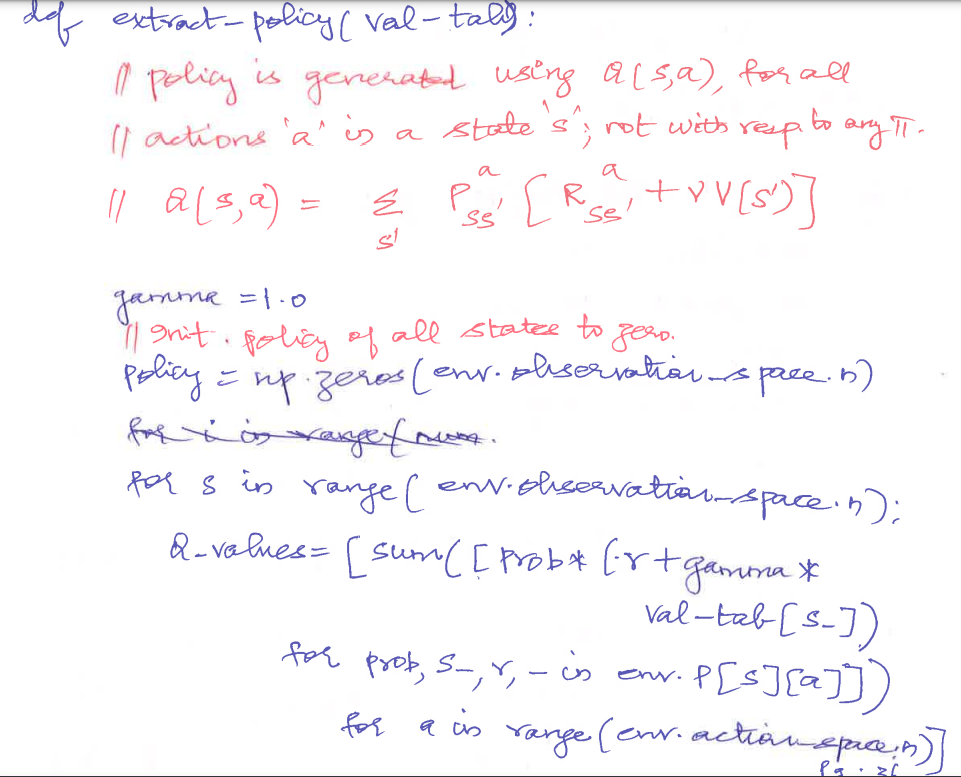 def extract-policy( val-tab):
// policy is generated using Q(s,a), for all
// actions 'a' in a state 's'; not with resp. to any π.
// Q(s,a) = Σ_{s'} P^a_{ss'} [ R^a_{ss'} + γ V(s')]
gamma = 1.0
// Init. policy of all states to zero.
policy = np.zeros(env.observation_space.n)
for i in range(num.
for s in range( env.observation_space.n):
Q-values= [ sum( [ prob* (r + gamma *
val-tab[s_])
for prob, s_, r, _ in env.P[s][a]])
for a in range(env.action_space.n)]
Pg. 21